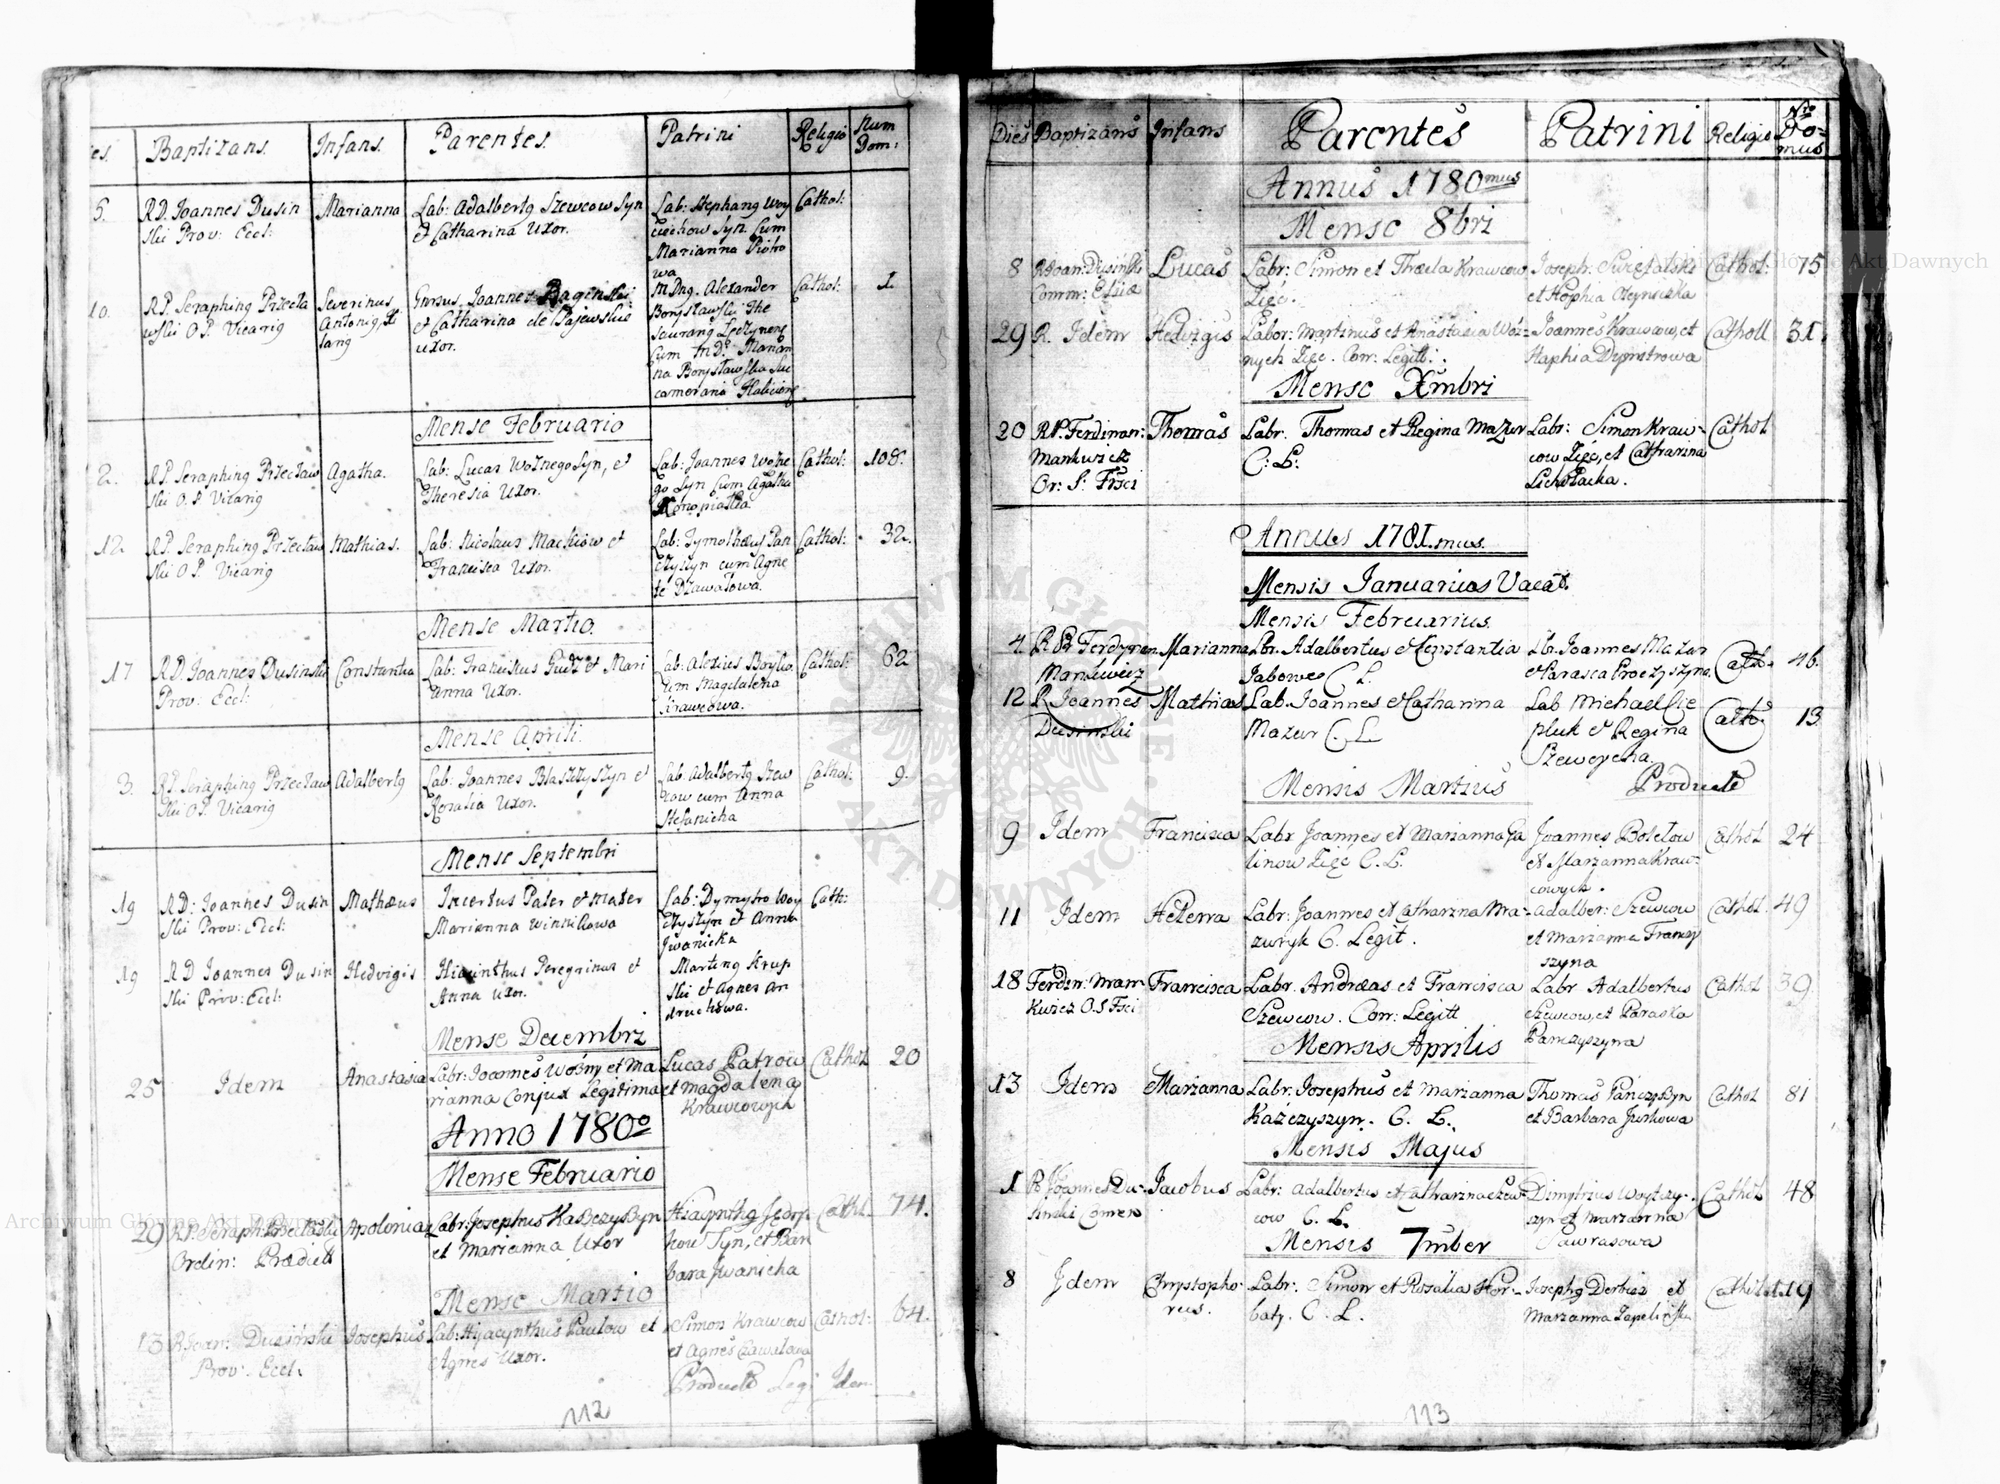 es.
Baptizans.
Infans.
Parentes.
Patrini
Religio
Num
Dom:
5.
RD. Joannes Dusin
ski Prov: Eccl:
Marianna
Lab: Adalbertg Szewcow Syn
et Catharina Uxor.
Lab: Stephang Woy
ciechow Syn. Cum
Marianna Piotro
wa
Cathol:
10.
RP. Seraphing Przecła
wski O.P. Vicarig
Severinus
Antonig,
lang
Joannes Baginski
et Catharina de Pajewskie
uxor.
M Dng. Alexander
Borysławski The
saurang
Cum M.D. Marian
na Borysławska Su
camerario Halicieng
Cathol:
1.
Mense Februario
2.
RP. Seraphing Przecław
ski O.P. Vicarig
Agatha.
Lab: Lucas Woznego Syn, et
Theresia Uxor.
Lab: Joannes Wozne
go Syn Cum Agatha
Konopiatka
Cathol:
108.
12.
RP. Seraphing Przecław
ski O.P. Vicarig
Mathias.
Lab: Nicolaus Mackiow et
Francisca Uxor.
Lab: Tymotheus Pan
czyszyn cum Agne
te Dzawałowa.
Cathol:
32.
Mense Martio.
17
RD. Joannes Dusinski
Prov: Eccl:
Constantia
Lab: Franciskus Gudz et Mari
anna Uxor.
Lab: Alexius Boyko
cum Magdalena
Krawcowa.
Cathol:
62
Mense Aprili.
3.
RP. Seraphing Przecław
ski O.P. Vicarig
Adalbertg
Lab: Joannes Błaszczyszyn et
Rosalia Uxor.
Lab. Adalbertg Szew
cow cum Anna
Stefanicha
Cathol:
9.
Mense Septembri
19
RD: Joannes Dusin
ski Prov: Eccl:
Mathæus
Incertus Pater et Mater
Marianna Winnikowa
Lab: Dymytro Woy
czyszyn et Anna
Jwanicka
Cath:
19
RD Joannes Dusin
ski Prov: Eccl:
Hedvigis
Hiacinthus Peregrinus et
Anna Uxor.
Marting Krup
ski et Agnes An
druchowa.
Mense Decembri
25
Idem
Anastasia
Labr: Joannes Woźny et Ma
rianna Conjux Legitima
Lucas Patrow
et Magdalena
Krawcowych
Cathol
20
Anno 1780o
Mense Februario
29
RP. Seraph: Przecławski
Ordin: Prædict
Apolonia
Labr: Josephus Kaszczyszyn
et Marianna Uxor
Hiacynthg Fedor
kow Syn, et Bar
bara Jwanicha
Cathl.
74.
Mense Martio
13
R Joan: Dusiński
Prov: Eccl.
Josephus
Lab: Hyacynthus Pawlow et
Agnes Uxor.
Simon Krawcow
et Agnes Czawalowa
Producto Legi Idem
Cathol:
64.
112
Dies
Baptizans
Infans
Parentes
Patrini
Religio
Nro
Do=
mus
Annus 1780mus
Mense 8bri
8
R Joan: Dusiński
Comm: Eccliæ
Lucas
Labr: Simon et Thecla Krawcow
Zięc.
Joseph. Swiezalski
et Hophia Olejniczka
Cathol:
75
29
R. Idem
Hedvigis
Labor: Martinus et Anastasia Woź-
nych Zięc. Con: Legitt:.
Joannes Krawcow, et
Haphia Dymitrowa
Catholl
31.
Mense Xmbri
20
RP. Ferdinan:
Mankuwicz
Or: S: Frsci
Thomas
Labr. Thomas et Regina Mazur
C: L:
Labr: Simon Kraw-
cow Zięc, et Catharina
Lichołacka.
Cathol
Annus 1781.mus.
Mensis Januarius Vacat.
Mensis Februarius.
4
Ferdynan
Mankiewicz
Marianna
Lbr. Adalbertus et Constantia
Jabowe C L.
Lb. Joannes Mazur
et Parasca Procyszyna.
Cath.
46.
12
R Joannes
Dusinski
Mathias
Lab. Joannes et Catharina
Mazur C. L
Lab Michael Cie
pluk et Regina
Szewcycha.
Cath.
13
Mensis Martius
Producto
9
Idem
Francisca
Labr Joannes et Marianna Ga
linow Zięc C. L.
Joannes Boletow
et Marzanna Kraw-
cowych.
Cathol
24
11
Idem
Helena
Labr: Joannes et Catharzna Ma-
zuryk C. Legit.
Adalber: Szewcow
et Marianna Francy
szyna
Cathol.
49
18
Ferdin: Man-
kuwicz O.S Fsci
Francisca
Labr. Andræas et Francisca
Szewcow. Con: Legitt
Labr Adalbertus
Szewcow, et Paraska
Panczyszyna
Cathol
39
Mensis Aprilis
13
Idem
Marianna
Labr: Josephus et Marianna
Kaźczyszyn. C. L.
Thomas Pańczyszyn
et Barbara Jurkowa
Cathol
81
Mensis Majus
1
R Joannes Du-
sinski Comen
Jacobus
Labr: Adalbertus et Catharina Szew-
cow C. L.
Dimytrius Woytczy-
szyn et Marzanna
Sawrasowa
Cathol
48
Mensis 7mber
8
Idem
Chrystopho-
rus.
Labr: Simon et Rosalia Hor-
baty. C. L.
Josephg Derbisz et
Marzanna
Cathol
19
113
Archiwum Główne Akt Dawnych
Archiwum Główne Akt Dawnych
ARCHIWUM GŁÓWNE · AKT DAWNYCH ·